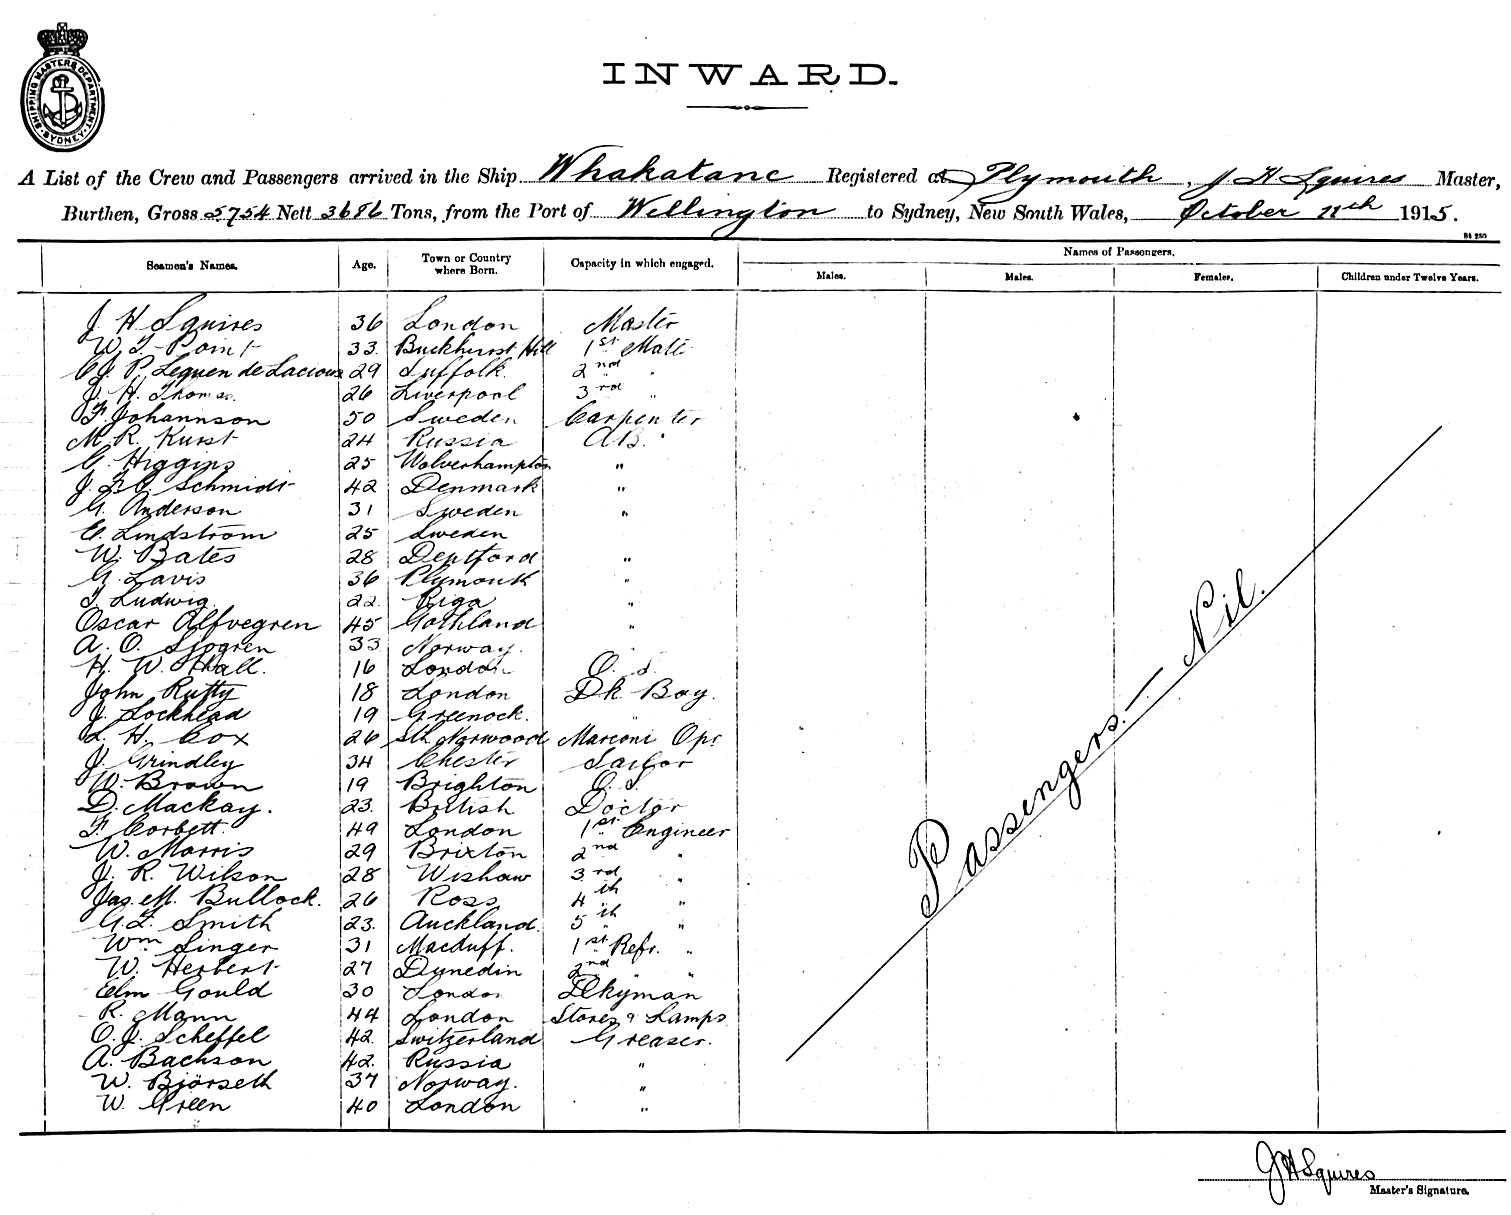 SHIPPING MASTERS DEPARTMENT. SYDNEY
INWARD.
A List of the Crew and Passengers arrived in the Ship Whakatane Registered at Plymouth, J H Squires Master,
Burthen, Gross 5754 Nett 3686 Tons, from the Port of Wellington to Sydney, New South Wales, October 11th 1915.
Seamen's Names. Age. Town or Country where Born. Capacity in which engaged. Names of Passengers.
Males. Males. Females. Children under Twelve Years.
J. H Squires 36 London Master
W. T. Point 33. Buckhurst Hill 1st Mate
P. Lequen de Lacroix 29 Suffolk. 2nd "
J. H. Thomas. 26 Liverpool 3rd "
F. Johannson 50 Sweden Carpenter
M. R. Kurst 24 Russia A.B.
G. Higgins 25 Wolverhampton "
J. F. Schmidt 42 Denmark "
G. Anderson 31 Sweden "
E. Lindstrom 25 Sweden
W. Bates 28 Deptford "
G. Lavis 36 Plymouth "
T. Ludwig 22. Riga "
Oscar Alfvegren 45 Gothland "
A. O. Sjogren 33 Norway.
H. W. Hall. 16 London O. S.
John Rutty 18 London Dk. Boy.
J. Lockhead 19 Greenock. "
L. H. Cox 26 Sth Norwood Marconi Opr
J. Grindley 34 Chester Sailor
W. Brown 19 Brighton O. S.
D. Mackay. 23. British Doctor
F. Corbett. 49 London 1st Engineer
W. Morris 29 Brixton 2nd "
J. R. Wilson 28 Wishaw 3rd "
Jas. M. Bullock. 26 Ross 4th "
G. F. Smith 23. Auckland. 5th "
Wm Singer 31 Macduff. 1st Refr. "
W. Herbert 27 Dunedin 2nd " "
Elm Gould 30 London Dkyman
R. Mann 44 London Stores & Lamps
O. J. Scheffel 42 Switzerland Greaser.
A. Bachson 42. Russia "
W. Björseth 37 Norway. "
W. Green 40 London "
Passengers. — Nil.
J H Squires
Master's Signature.